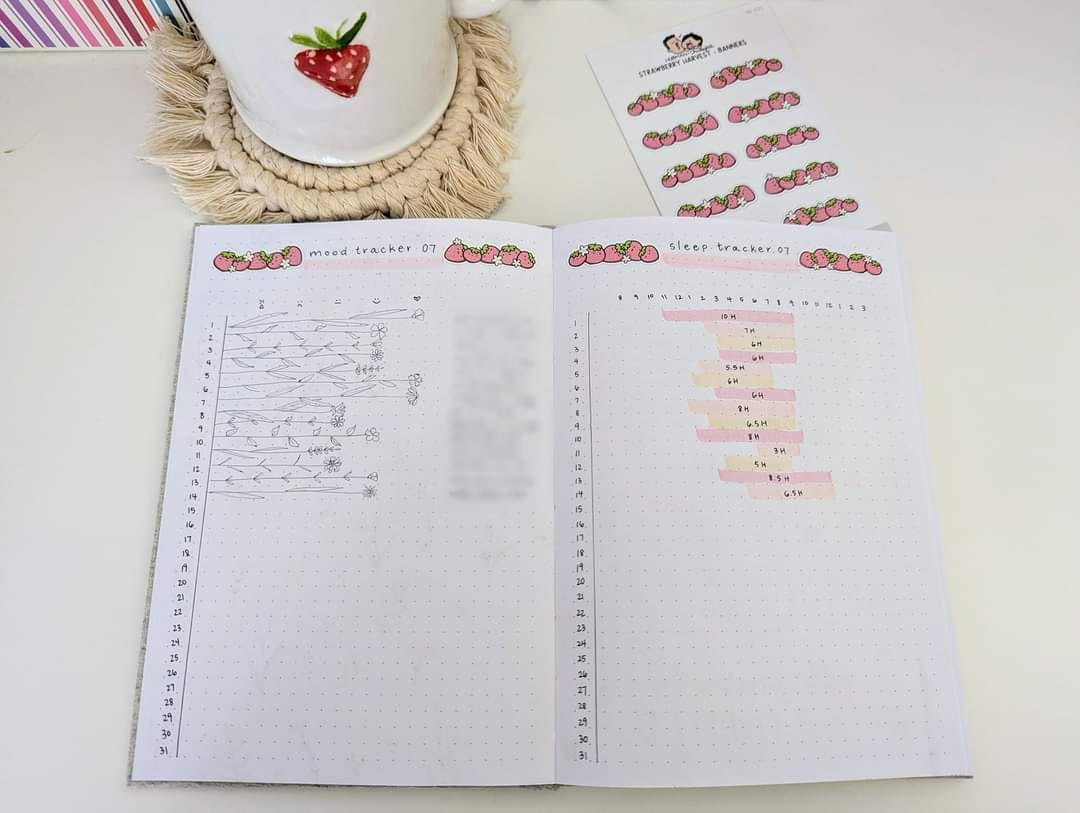 STRAWBERRY HARVEST - BANNERS
mood tracker 07
1
2
3
4
5
6
7
8
9
10
11
12
13
14
15
16
17
18
19
20
21
22
23
24
25
26
27
28
29
30
31
sleep tracker 07
8 9 10 11 12 1 2 3 4 5 6 7 8 9 10 11 12 1 2 3
1 10 H
2 7 H
3 6 H
4 6 H
5 5.5 H
6 6 H
7 6 H
8 8 H
9 6.5 H
10 8 H
11 3 H
12 5 H
13 8.5 H
14 6.5 H
15
16
17
18
19
20
21
22
23
24
25
26
27
28
29
30
31